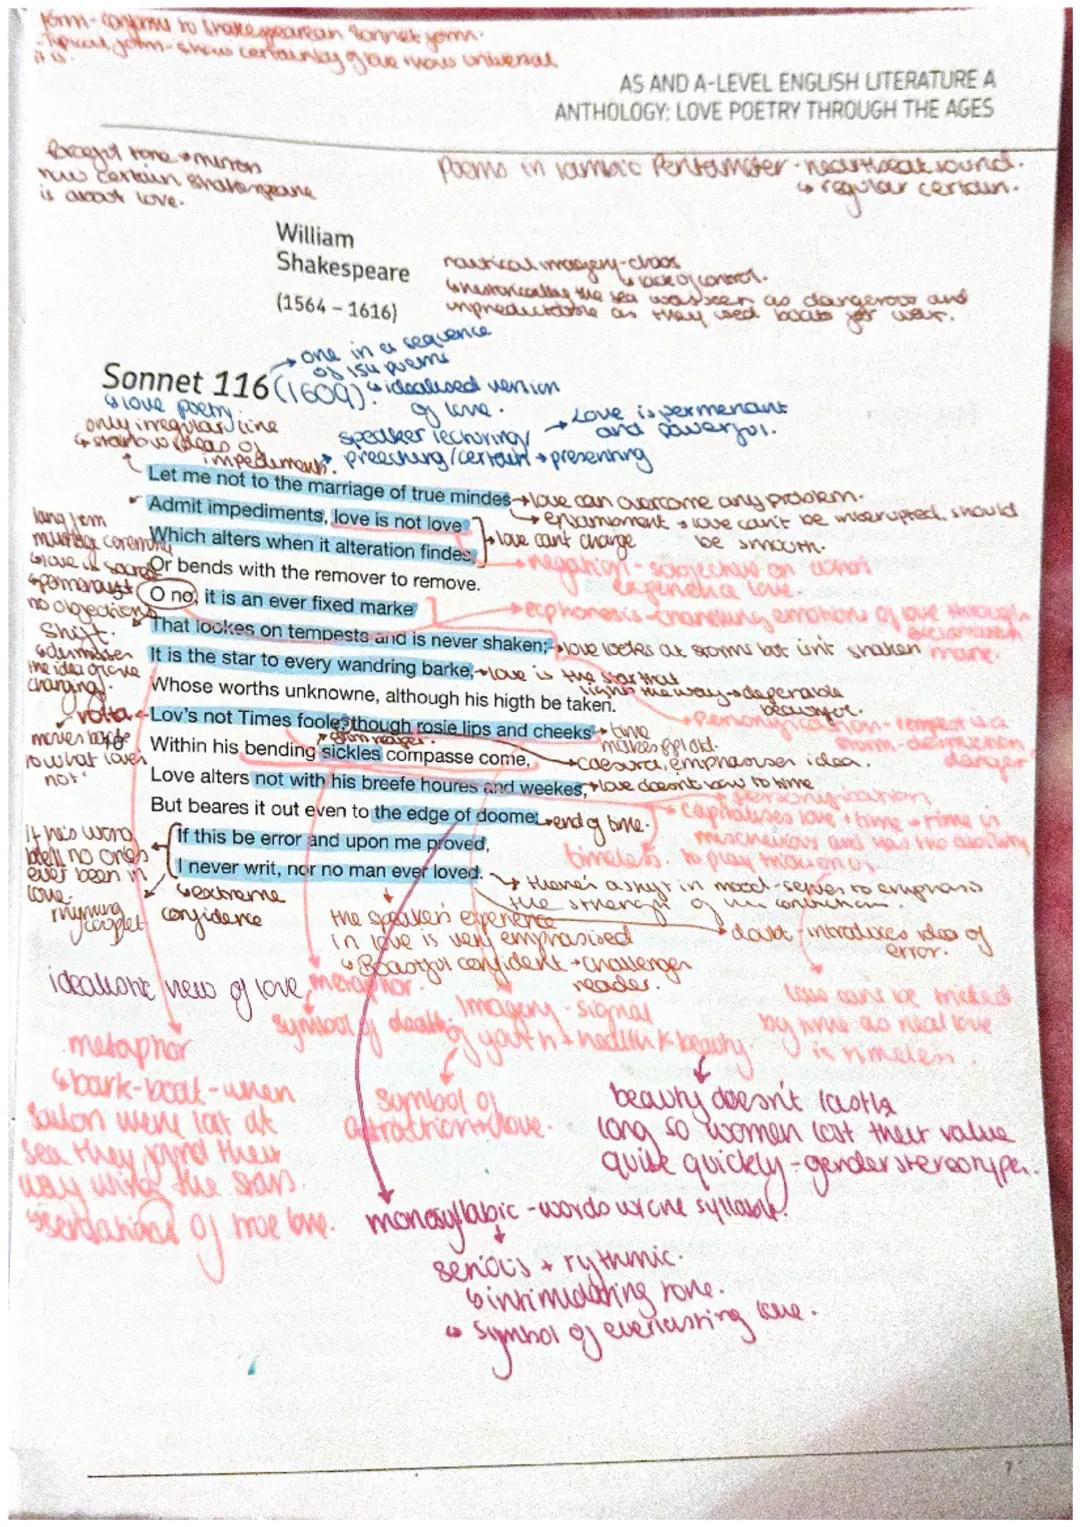 form-conforms to Shakespearean Sonnet form.
-Typical form-shows certainty of love + how universal
it is.
AS AND A-LEVEL ENGLISH LITERATURE A
ANTHOLOGY: LOVE POETRY THROUGH THE AGES
tone + mirrors
how certain Shakespeare
is about love.
Poems in iambic Pentameter - heartbeat sound.
↳ regular certain.
William
Shakespeare
(1564 – 1616)
nautical imagery-chaos
↳ lack of control.
↳ historically the sea was seen as dangerous and
unpredictable as they used boats for war.
→ one in a sequence
of 154 poems
Sonnet 116 (1609).
↳ idealised version
of love.
↳ love poetry.
only irregular line
↳ ideas of
impediments.
speaker lecturing/
preeching/certain → presenting
→ Love is permenant
and powerful.
Let me not to the marriage of true mindes
→ love can overcome any problem.
Admit impediments, love is not love
→ enjambment → love can't be interupted, should
be smooth.
Which alters when it alteration findes,
→ love cant change
Or bends with the remover to remove.
→ negation - subjective on what
love.
O no, it is an ever fixed marke
→ ecphonesis-channeling emotions of love through
That lookes on tempests and is never shaken;
→ love looks at storms but isnt shaken
It is the star to every wandring barke,
→ love is the star that
lights the way → dependable
beautiful.
Whose worths unknowne, although his higth be taken.
→ personification - tempest is a
storm - destruction
danger
Lov's not Times foole, though rosie lips and cheeks
→ time
makes ppl old.
grim reaper.
Within his bending sickles compasse come,
→ caesura, emphasises idea.
Love alters not with his breefe houres and weekes,
→ love doesnt bow to time
→ personification
But beares it out even to the edge of doome:
→ end of time.
timeless.
- capitalises love + time - time is
mischevious and has the ability
to play tricks on us.
If this be error and upon me proved,
I never writ, nor no man ever loved.
long term
marriage ceremony
↳ love is sacred
↳ permanent
no objections
Shift.
↳ dismisses
the idea of love
changing.
volta
moves back
to what love's
not.
if he's wrong
well no one's
ever been in
love.
rhyming
couplet
↳ extreme
confidence
→ there's a shift in mood-serves to emphasis
the strength of his conviction.
→ doubt - introduces idea of
error.
the speaker's experience
in love is very emphasised
↳ Boastful confident → challenges
reader.
idealistic view of love
metaphor.
symbol of death.
Imagery - signal
of youth + health & beauty.
love can't be tricked
by time as real love
is timeless.
metaphor
↳ bark-boat-when
sailors were lost at
sea they found their
way with the stars.
of true love.
symbol of
attraction + love.
beauty doesn't last
long so women lost their value
quite quickly - gender stereotypes.
monosyllabic - words w one syllable.
serious + rythmic.
↳ intimidating tone.
↳ symbol of everlasting love.
7